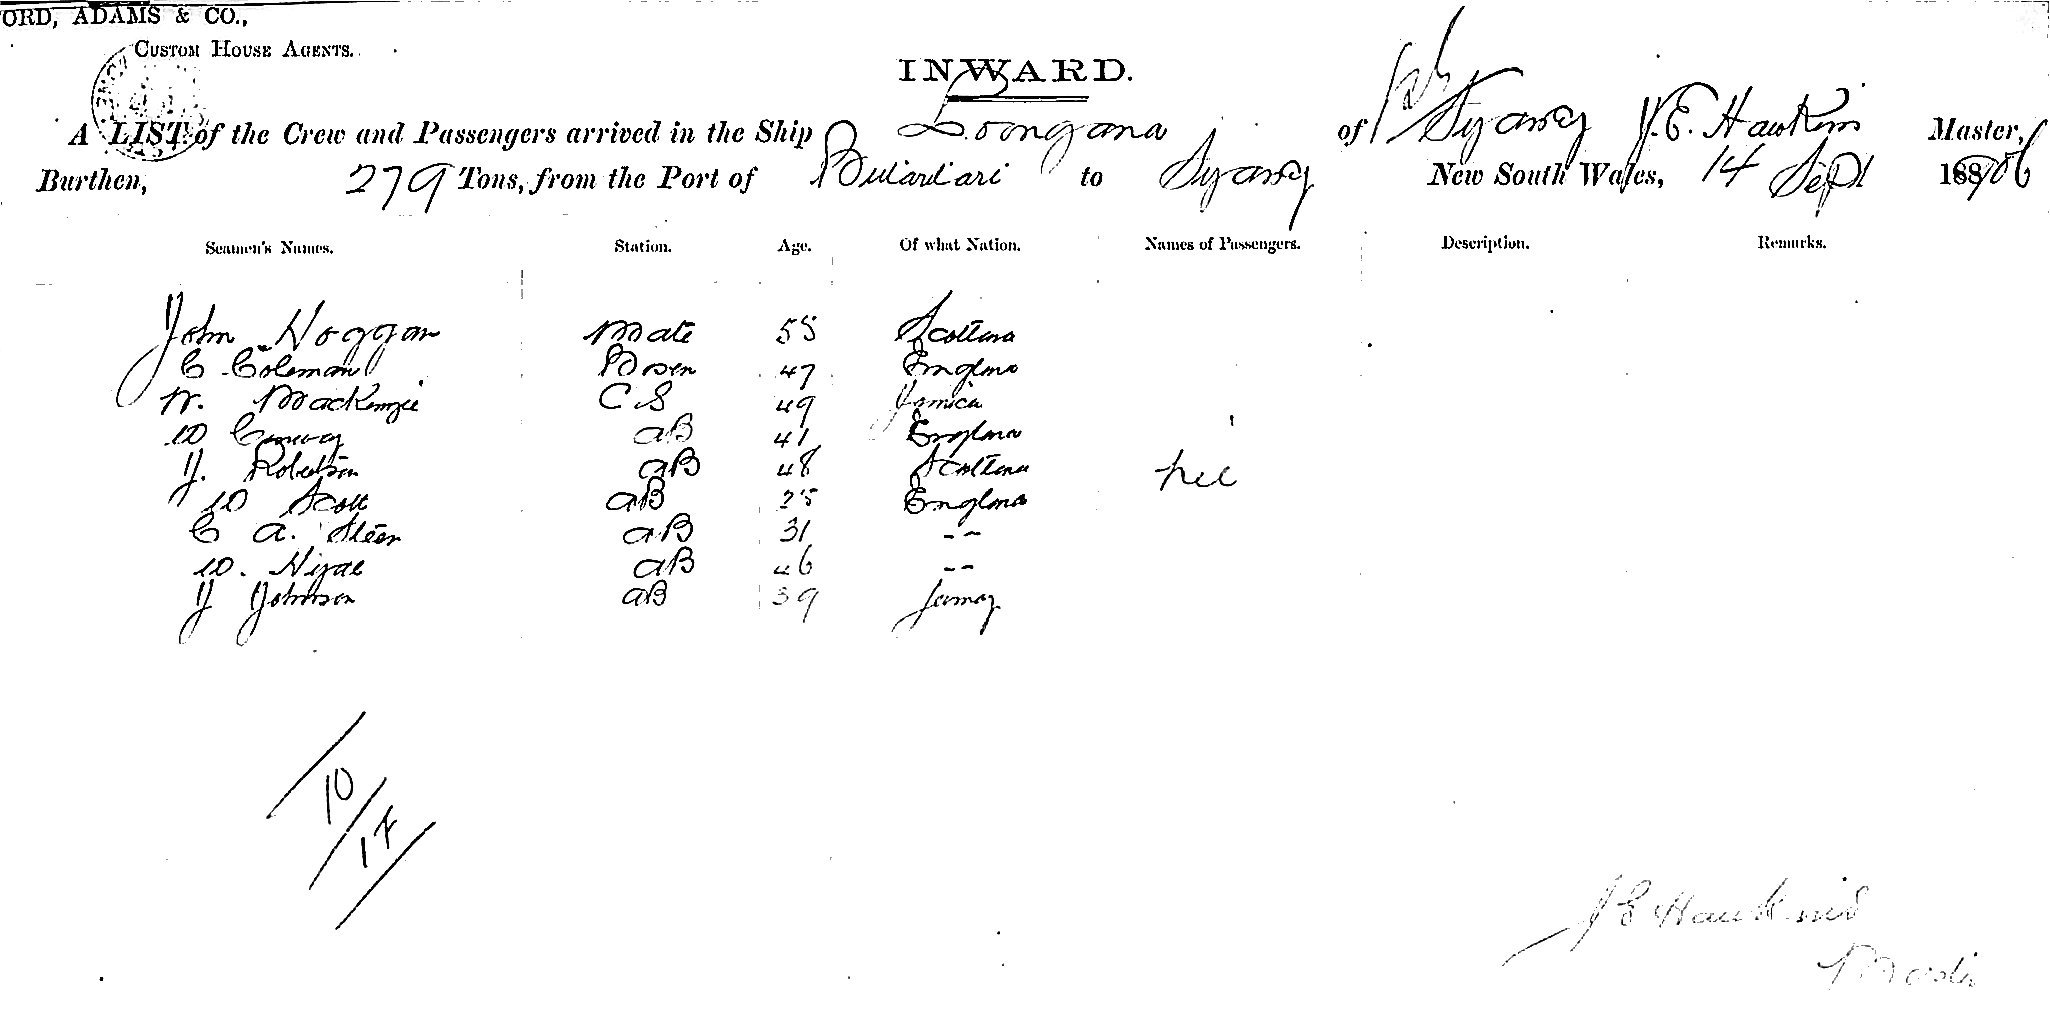 ORD, ADAMS & CO.,
CUSTOM HOUSE AGENTS.
INWARD.
A LIST of the Crew and Passengers arrived in the Ship Loongana of Sydney J. E. Hawkins Master,
Burthen, 279 Tons, from the Port of Butaritari to Sydney New South Wales, 14 Sept 1906
Seamen's Names. Station. Age. Of what Nation. Names of Passengers. Description. Remarks.
John Hoggan Mate 55 Scotland
C Coleman Bosen 47 England
W. Mackenzie C S 49 Jamica
W AB 41 England
J. Robertson AB 48 Scotland
W Scott AB 25 England
C A. Steen AB 31 --
W. AB 46 --
J Johnson AB 39
nil
10/14
J E Hawkins
Master